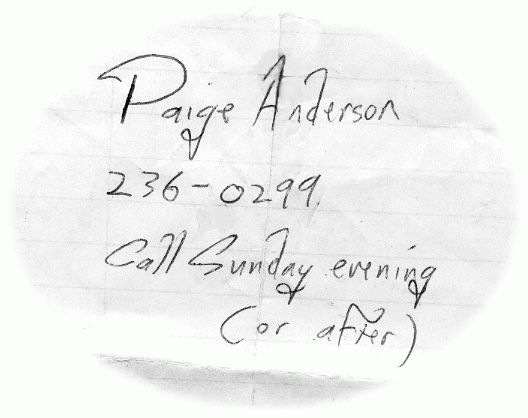 Paige Anderson
236-0299
Call Sunday evening
(or after)